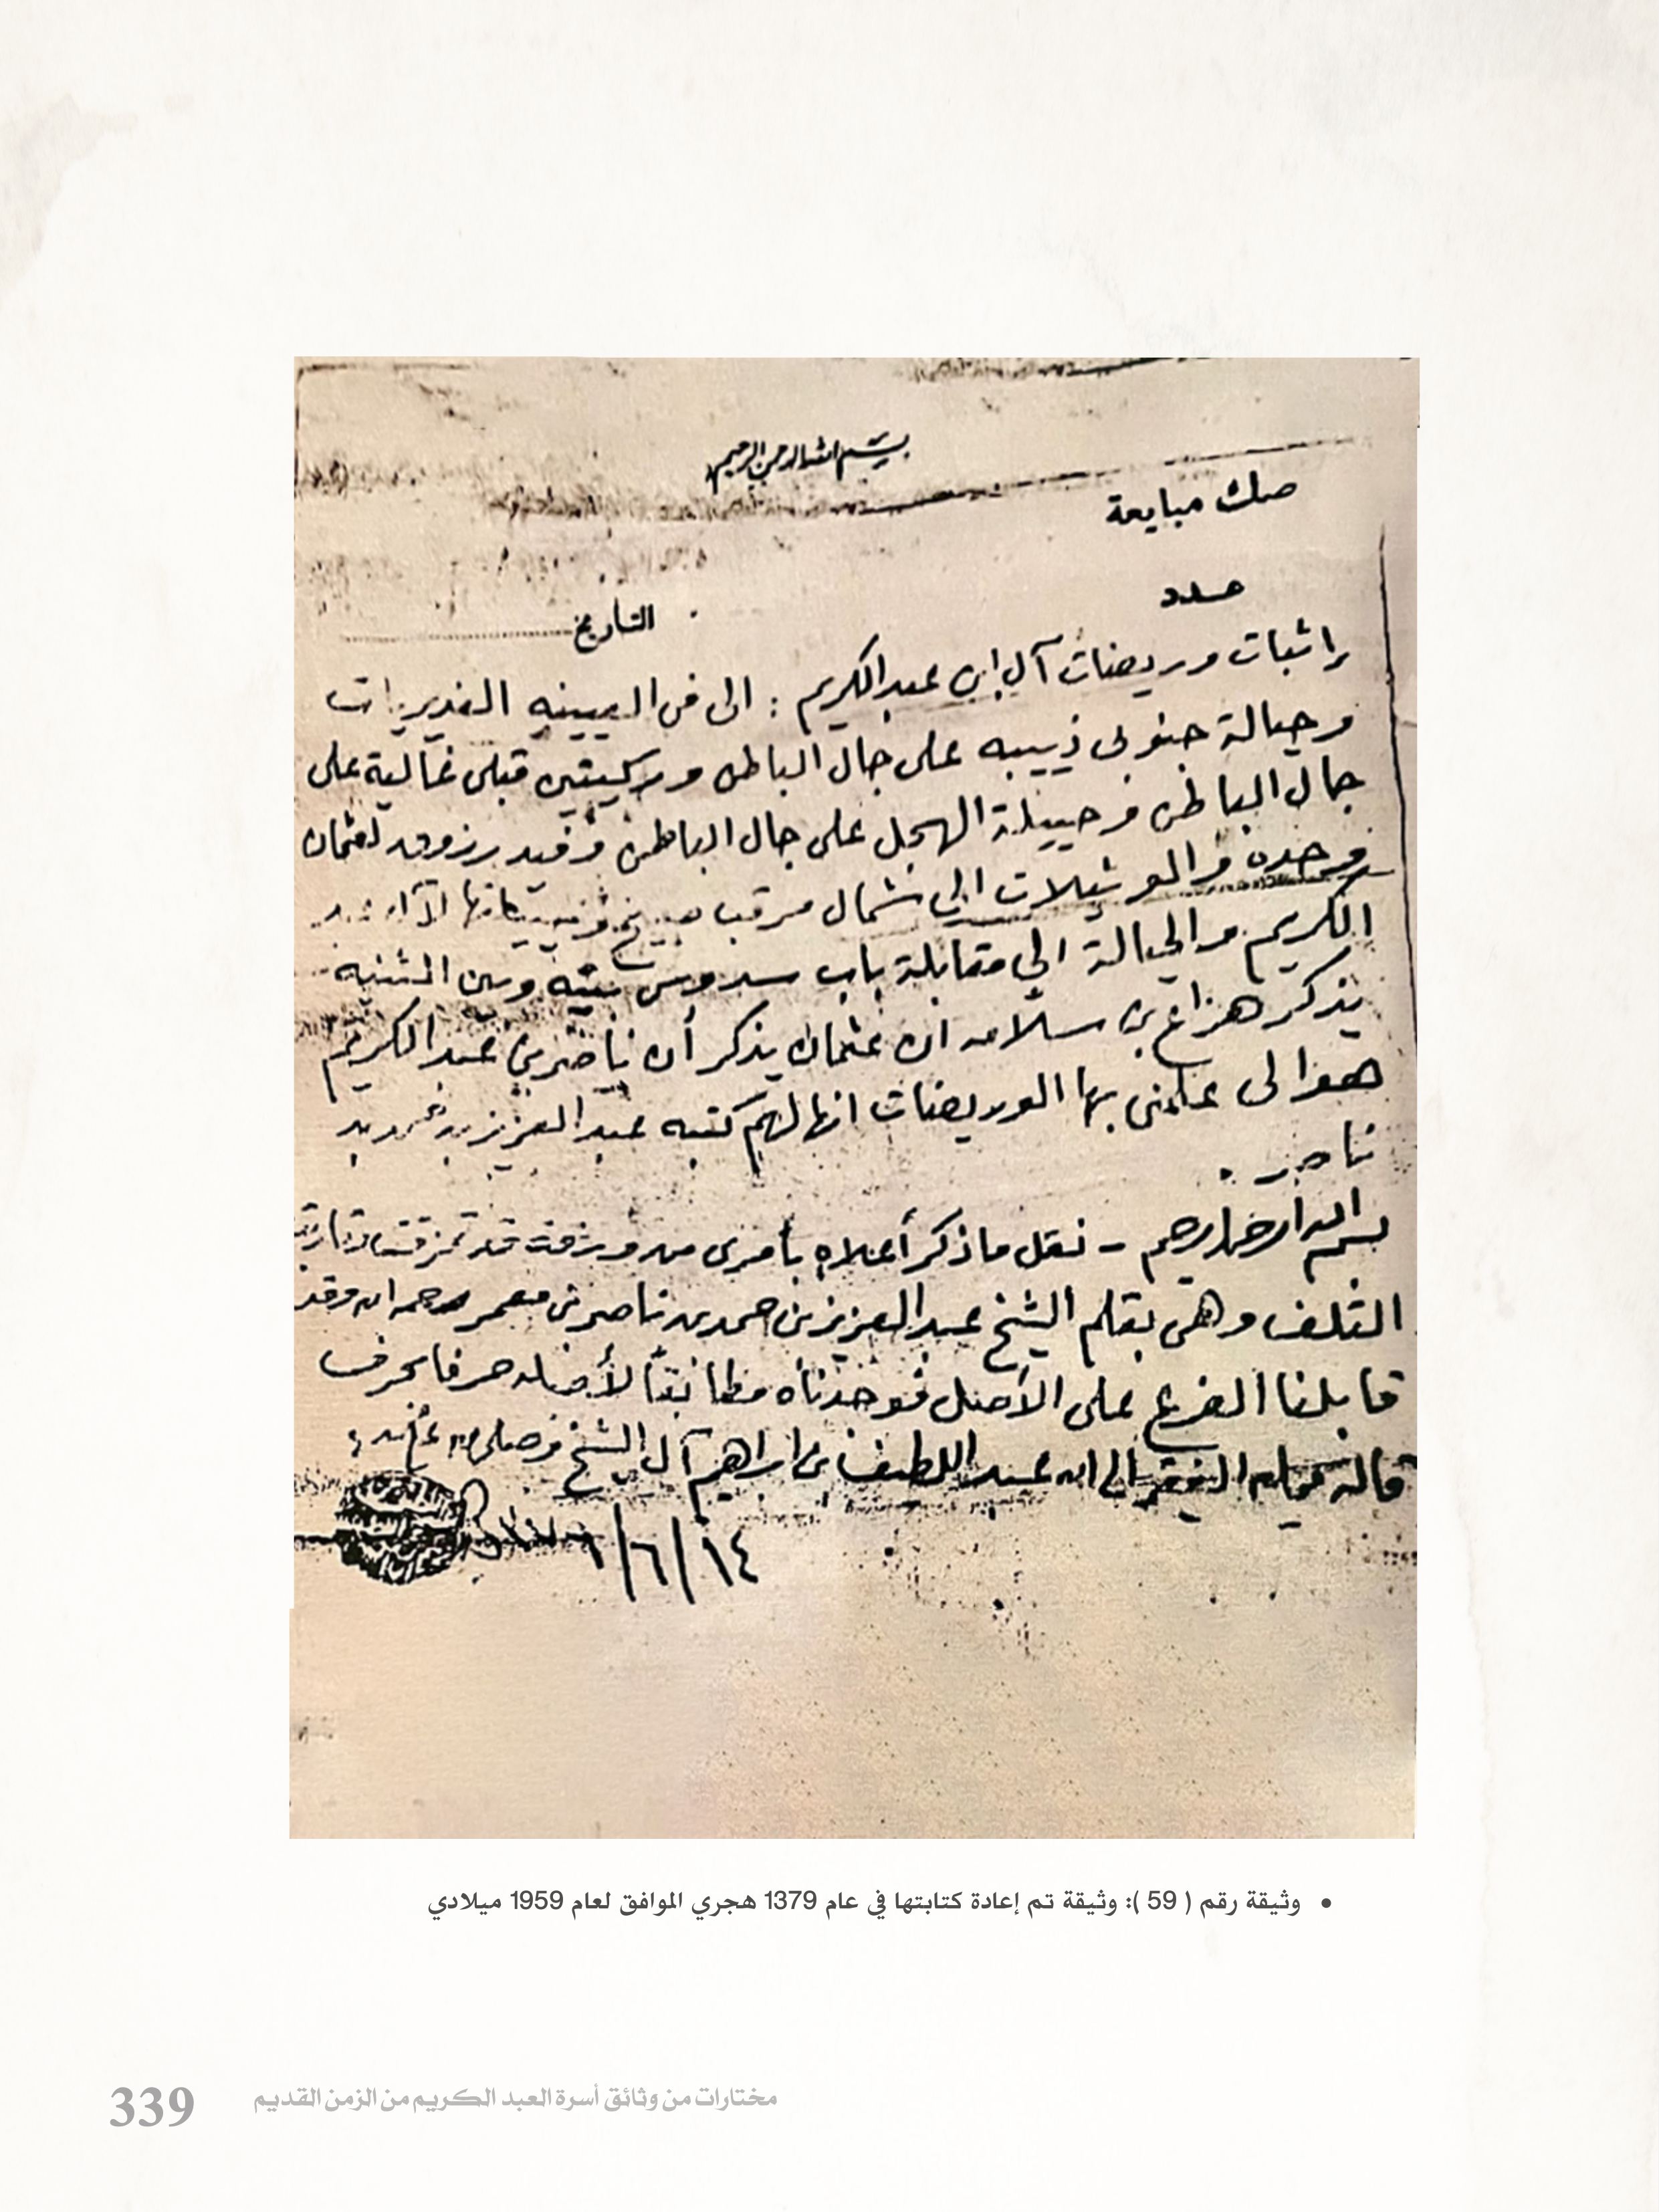 بسم الله الرحمن الرحيم
صك مبايعة
عدد
التاريخ
راثبات وريضات آل ابن عبد الكريم : الى من الغديريات
وحيالة جنوبي ذييبه على جال الباطن وركيتين قبلي غمالية على
جال الباطن وحييلة الهجل على جال الباطن وفيد رزوق لعثمان
وحده والوشيلات الى شمال مرقب
الكريم والحيالة الى مقابلة باب سدوس بينه وبين الثنيه
يذكر هزاع بن سلامه ان عثمان يذكر أن ناصر بن عبد الكريم
هو الى علمني بها الوريضات انها لهم كتبه عبد العزيز بن حمد بن
ناصر .
بسم الله الرحمن الرحيم - نقل ما ذكر أعلاه بأمري من ورقة قد تمزقت
التلف وهي بقلم الشيخ عبد العزيز بن حمد بن ناصر بن معمر رحمه الله وقد
قابلنا الفرع على الأصل فوجدناه مطابقاً لأصله حرفا بحرف
قاله ممليه الفقير الى الله عبد اللطيف بن ابراهيم آل الشيخ وصلى الله على محمد
١٤/٦/
• وثيقة رقم ( 59 ): وثيقة تم إعادة كتابتها في عام 1379 هجري الموافق لعام 1959 ميلادي
مختارات من وثائق أسرة العبد الكريم من الزمن القديم
339